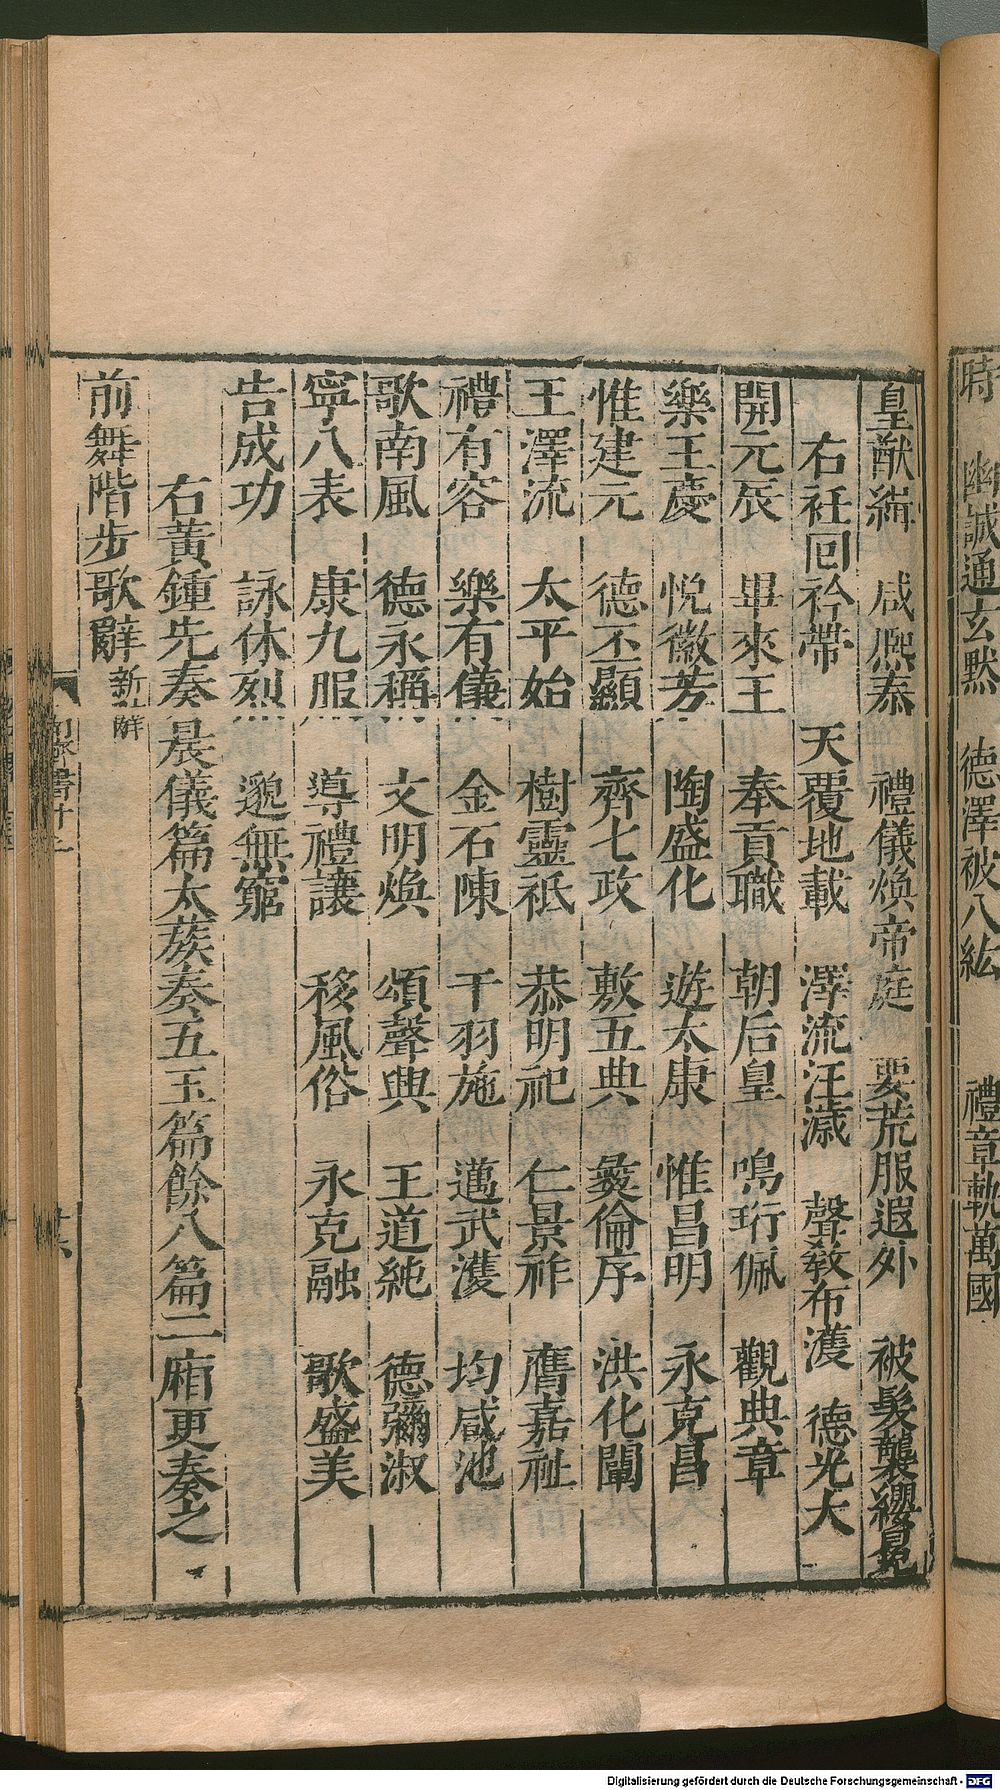 時　幽誠通玄默　德澤被八紘　禮章軌萬國
皇猷緝　咸熈泰　禮儀煥帝庭　要荒服遐外　被髮襲纓冕
右衽回衿帶　天覆地載　澤流汪濊　聲教布濩　德光大
開元辰　畢來王　奉貢職　朝后皇　鳴珩佩　觀典章
樂王慶　悅徽芳　陶盛化　遊太康　惟昌明　永克昌
惟建元　德丕顯　齊七政　敷五典　彝倫序　洪化闡
王澤流　太平始　樹靈祇　恭明祀　仁景祚　膺嘉祉
禮有容　樂有儀　金石陳　干羽施　邁武濩　均咸池
歌南風　德永稱　文明煥　頌聲興　王道純　德彌淑
寧八表　康九服　導禮讓　移風俗　永克融　歌盛美
告成功　詠休烈　邈無窮
右黃鍾先奏晨儀篇太蔟奏五玉篇餘八篇二廂更奏之
前舞階步歌辭新辭
Digitalisierung gefördert durch die Deutsche Forschungsgemeinschaft - DFG